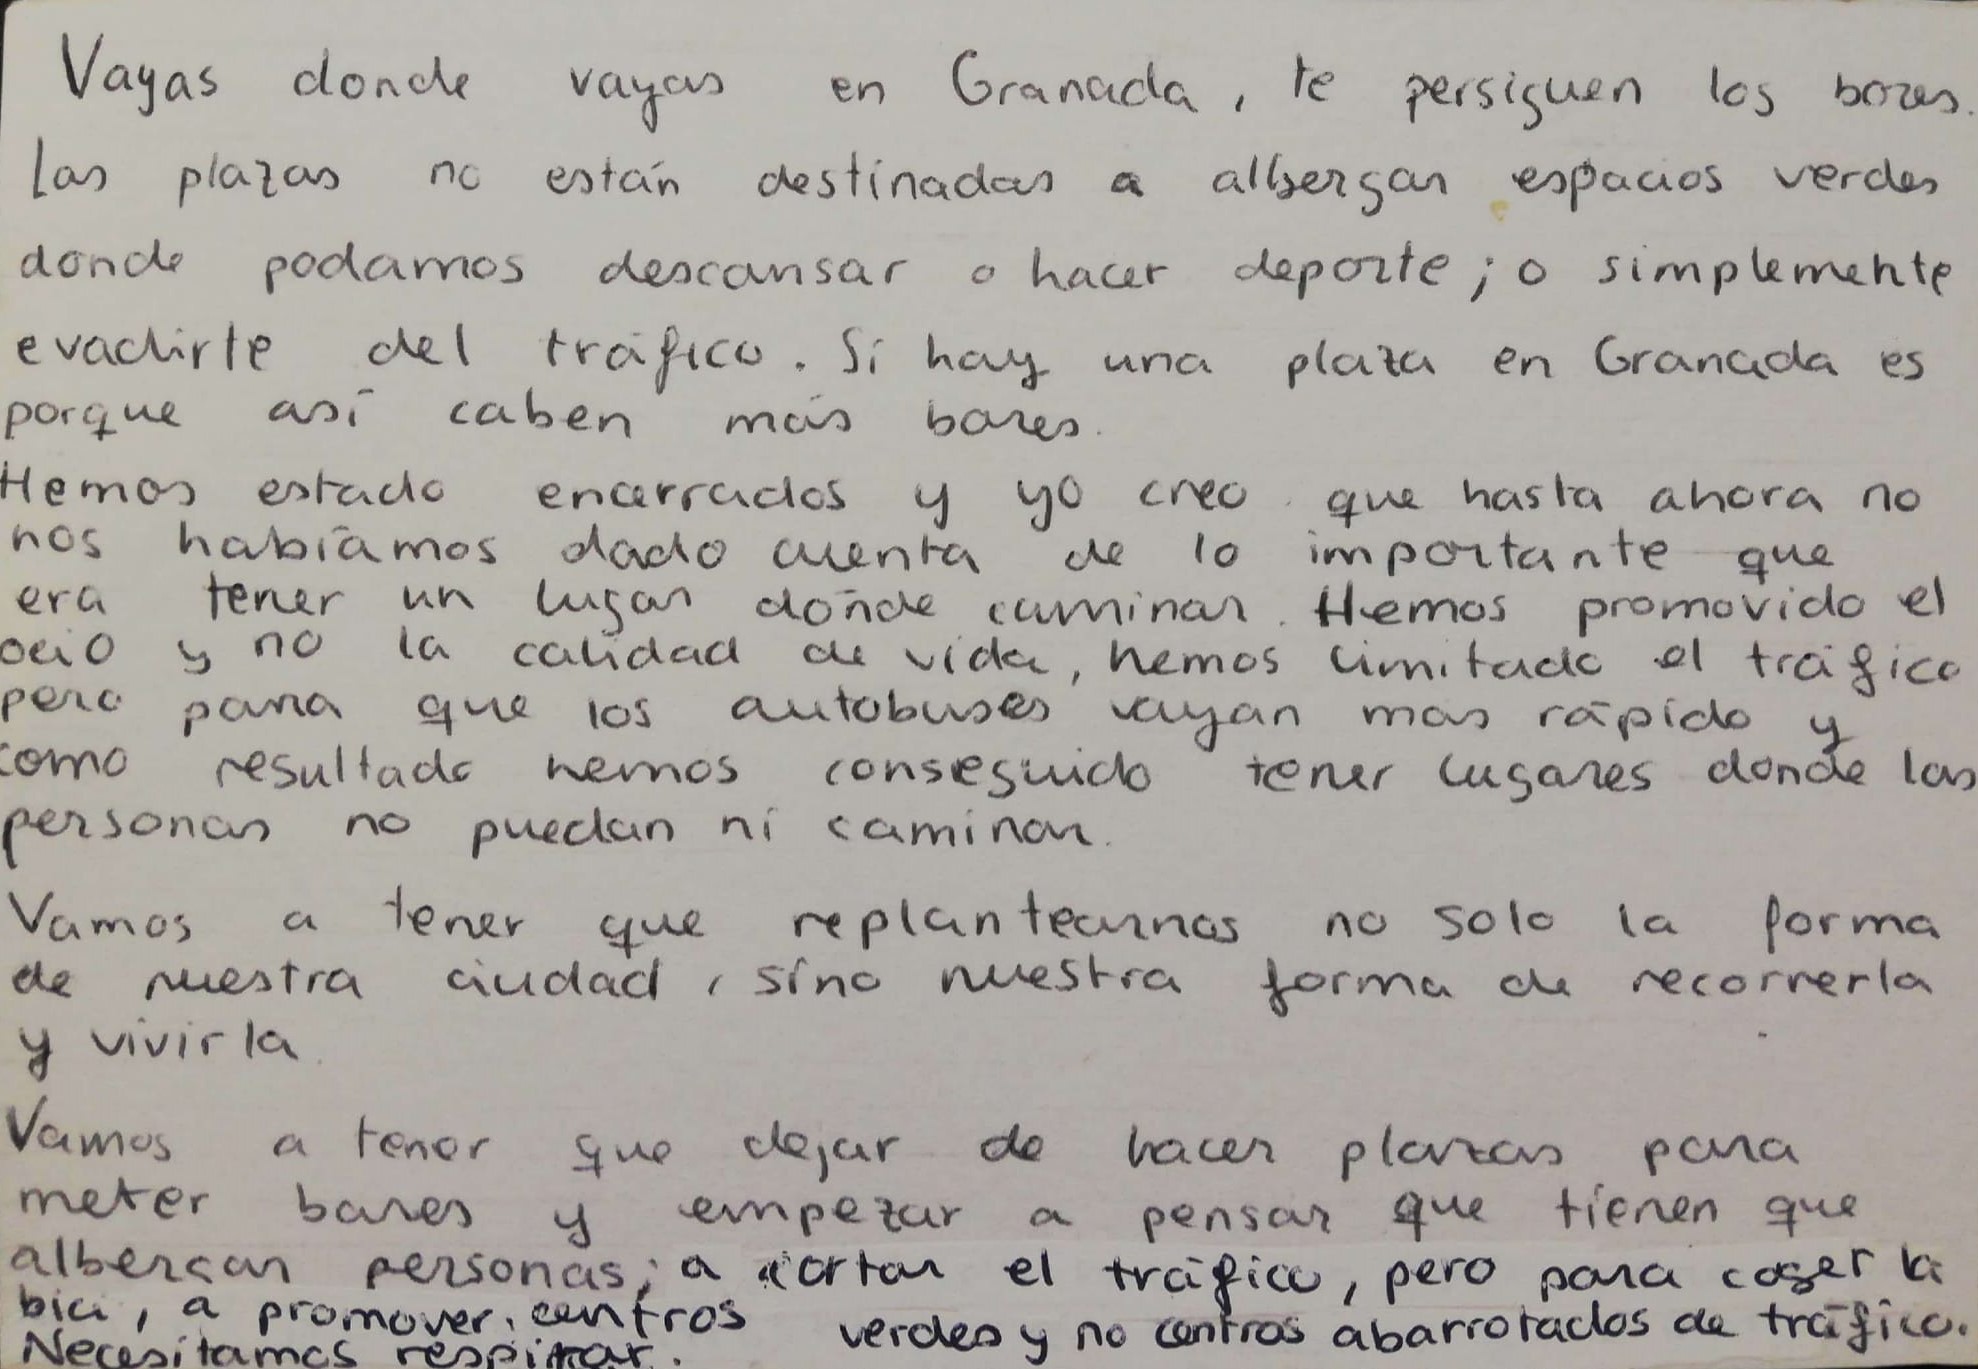 Vayas donde vayas en Granada, te persiguen los bares.
Las plazas no están destinadas a albergar espacios verdes
donde podamos descansar o hacer deporte; o simplemente
evadirte del tráfico. Si hay una plaza en Granada es
porque así caben más bares.
Hemos estado encerrados y yo creo que hasta ahora no
nos habíamos dado cuenta de lo importante que
era tener un lugar donde caminar. Hemos promovido el
ocio y no la calidad de vida, hemos limitado el tráfico
pero para que los autobuses vayan mas rápido y
como resultado hemos conseguido tener lugares donde las
personas no puedan ni caminar.
Vamos a tener que replantearnos no solo la forma
de nuestra ciudad, sino nuestra forma de recorrerla
y vivirla.
Vamos a tener que dejar de hacer plazas para
meter bares y empezar a pensar que tienen que
albergar personas; a cortar el tráfico, pero para coger la
bici, a promover centros verdes y no centros abarrotados de tráfico.
Necesitamos respirar.